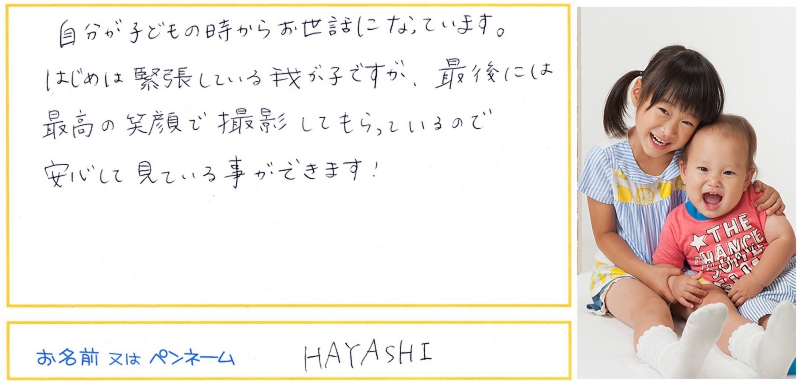 自分が子どもの時からお世話になっています。
はじめは緊張している我が子ですが、最後には
最高の笑顔で撮影してもらっているので
安心して見ている事ができます！
お名前 又は ペンネーム HAYASHI
THE
CHANCE